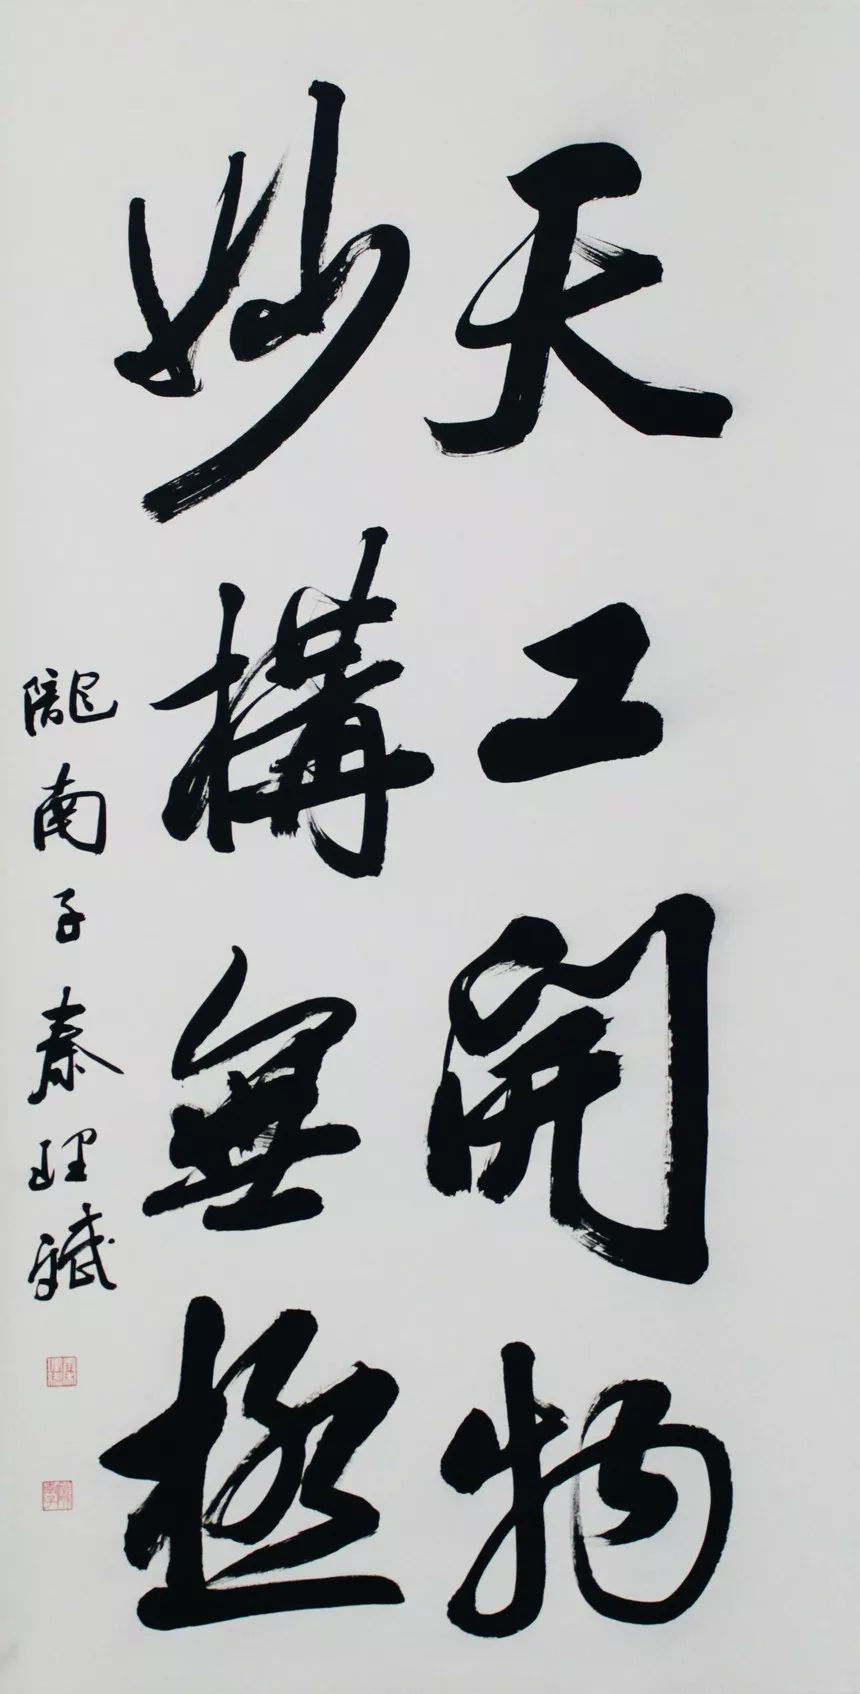 天工開物
妙構無極
隴南子秦理斌